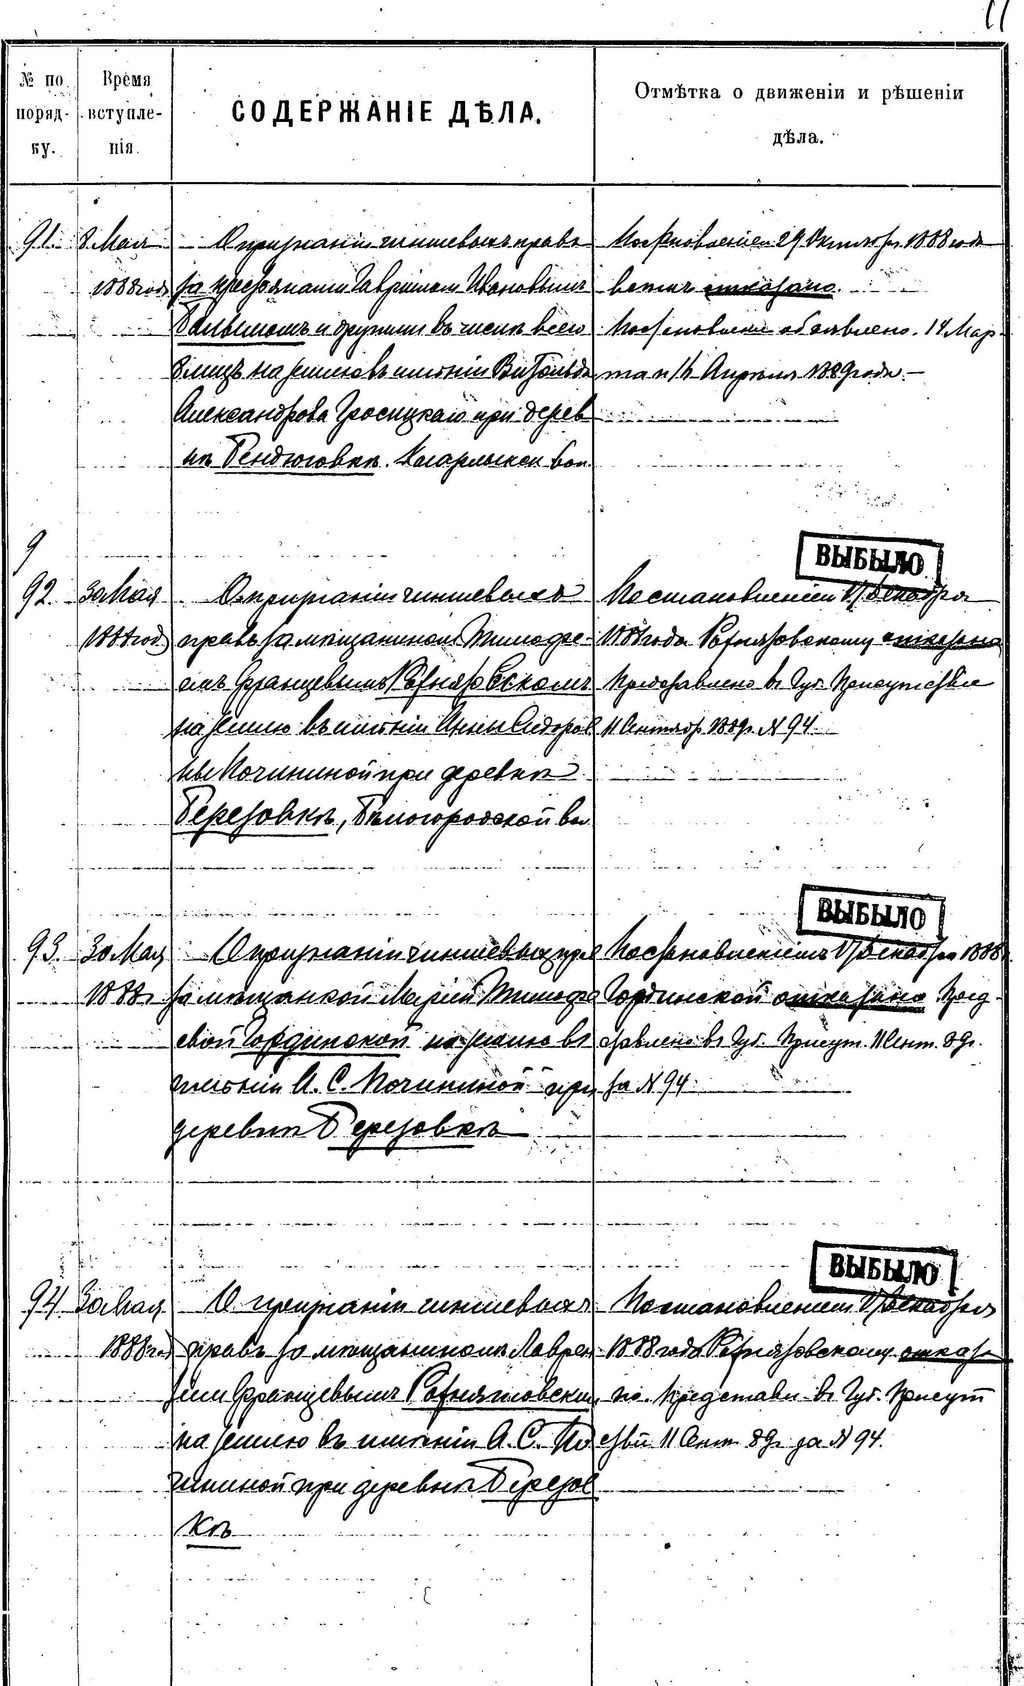 11
№ по поряд- ку.
Время вступле- нія.
СОДЕРЖАНІЕ ДѢЛА.
Отмѣтка о движеніи и рѣшеніи дѣла.
91. 8 Мая 1888 год
О признаніи чиншевыхъ правъ
за крестьянами Гавріиломъ Ивановымъ
и другими въ числѣ всего
8 лицъ на землю въ имѣніи Витольда
Александрова при дерев
нѣ Кагарлыкской вол.
Постановленіем 29 Октября 1888 года
отказано.
Постановленіе объявлено 14 Мар-
та и 16 Апрѣля 1889 года.—
9
92. 30 Мая 1888 год
О признаніи чиншевыхъ
правъ за мѣщаниномъ Тимофе-
емъ Францевымъ
на землю въ имѣніи Анны Сидоров
ны Почининой при деревнѣ
Березовкѣ, Бѣлогородской вол
ВЫБЫЛО
Постановленіем 17 Декабря
1888 года отказано
Представлено въ Губ. Присутствіе
11 Сентябр 1889 г. № 94.
93. 30 Мая 1888 г
О признаніи чиншевыхъ прав
за мѣщанкой Маріей Тимофе
евой Гординской на землю въ
имѣніи А. С. Почининой при
деревнѣ Березовкѣ
ВЫБЫЛО
Постановленіемъ 17 Декабря 1888
Гординской отказано Пред-
ставлено въ Губ. Присут. 11 Сент. 89 г.
за № 94.
94. 30 Мая 1888 год
О признаніи чиншевыхъ
правъ за мѣщаниномъ Лаврен
тіем Францевымъ
на землю въ имѣніи А. С. По
чининой при деревнѣ Березов
кѣ
ВЫБЫЛО
Постановленіем 17 Декабря
1888 года отказа
но. Представл въ Губ. Присут
ствіи 11 Сент. 89 г за № 94.